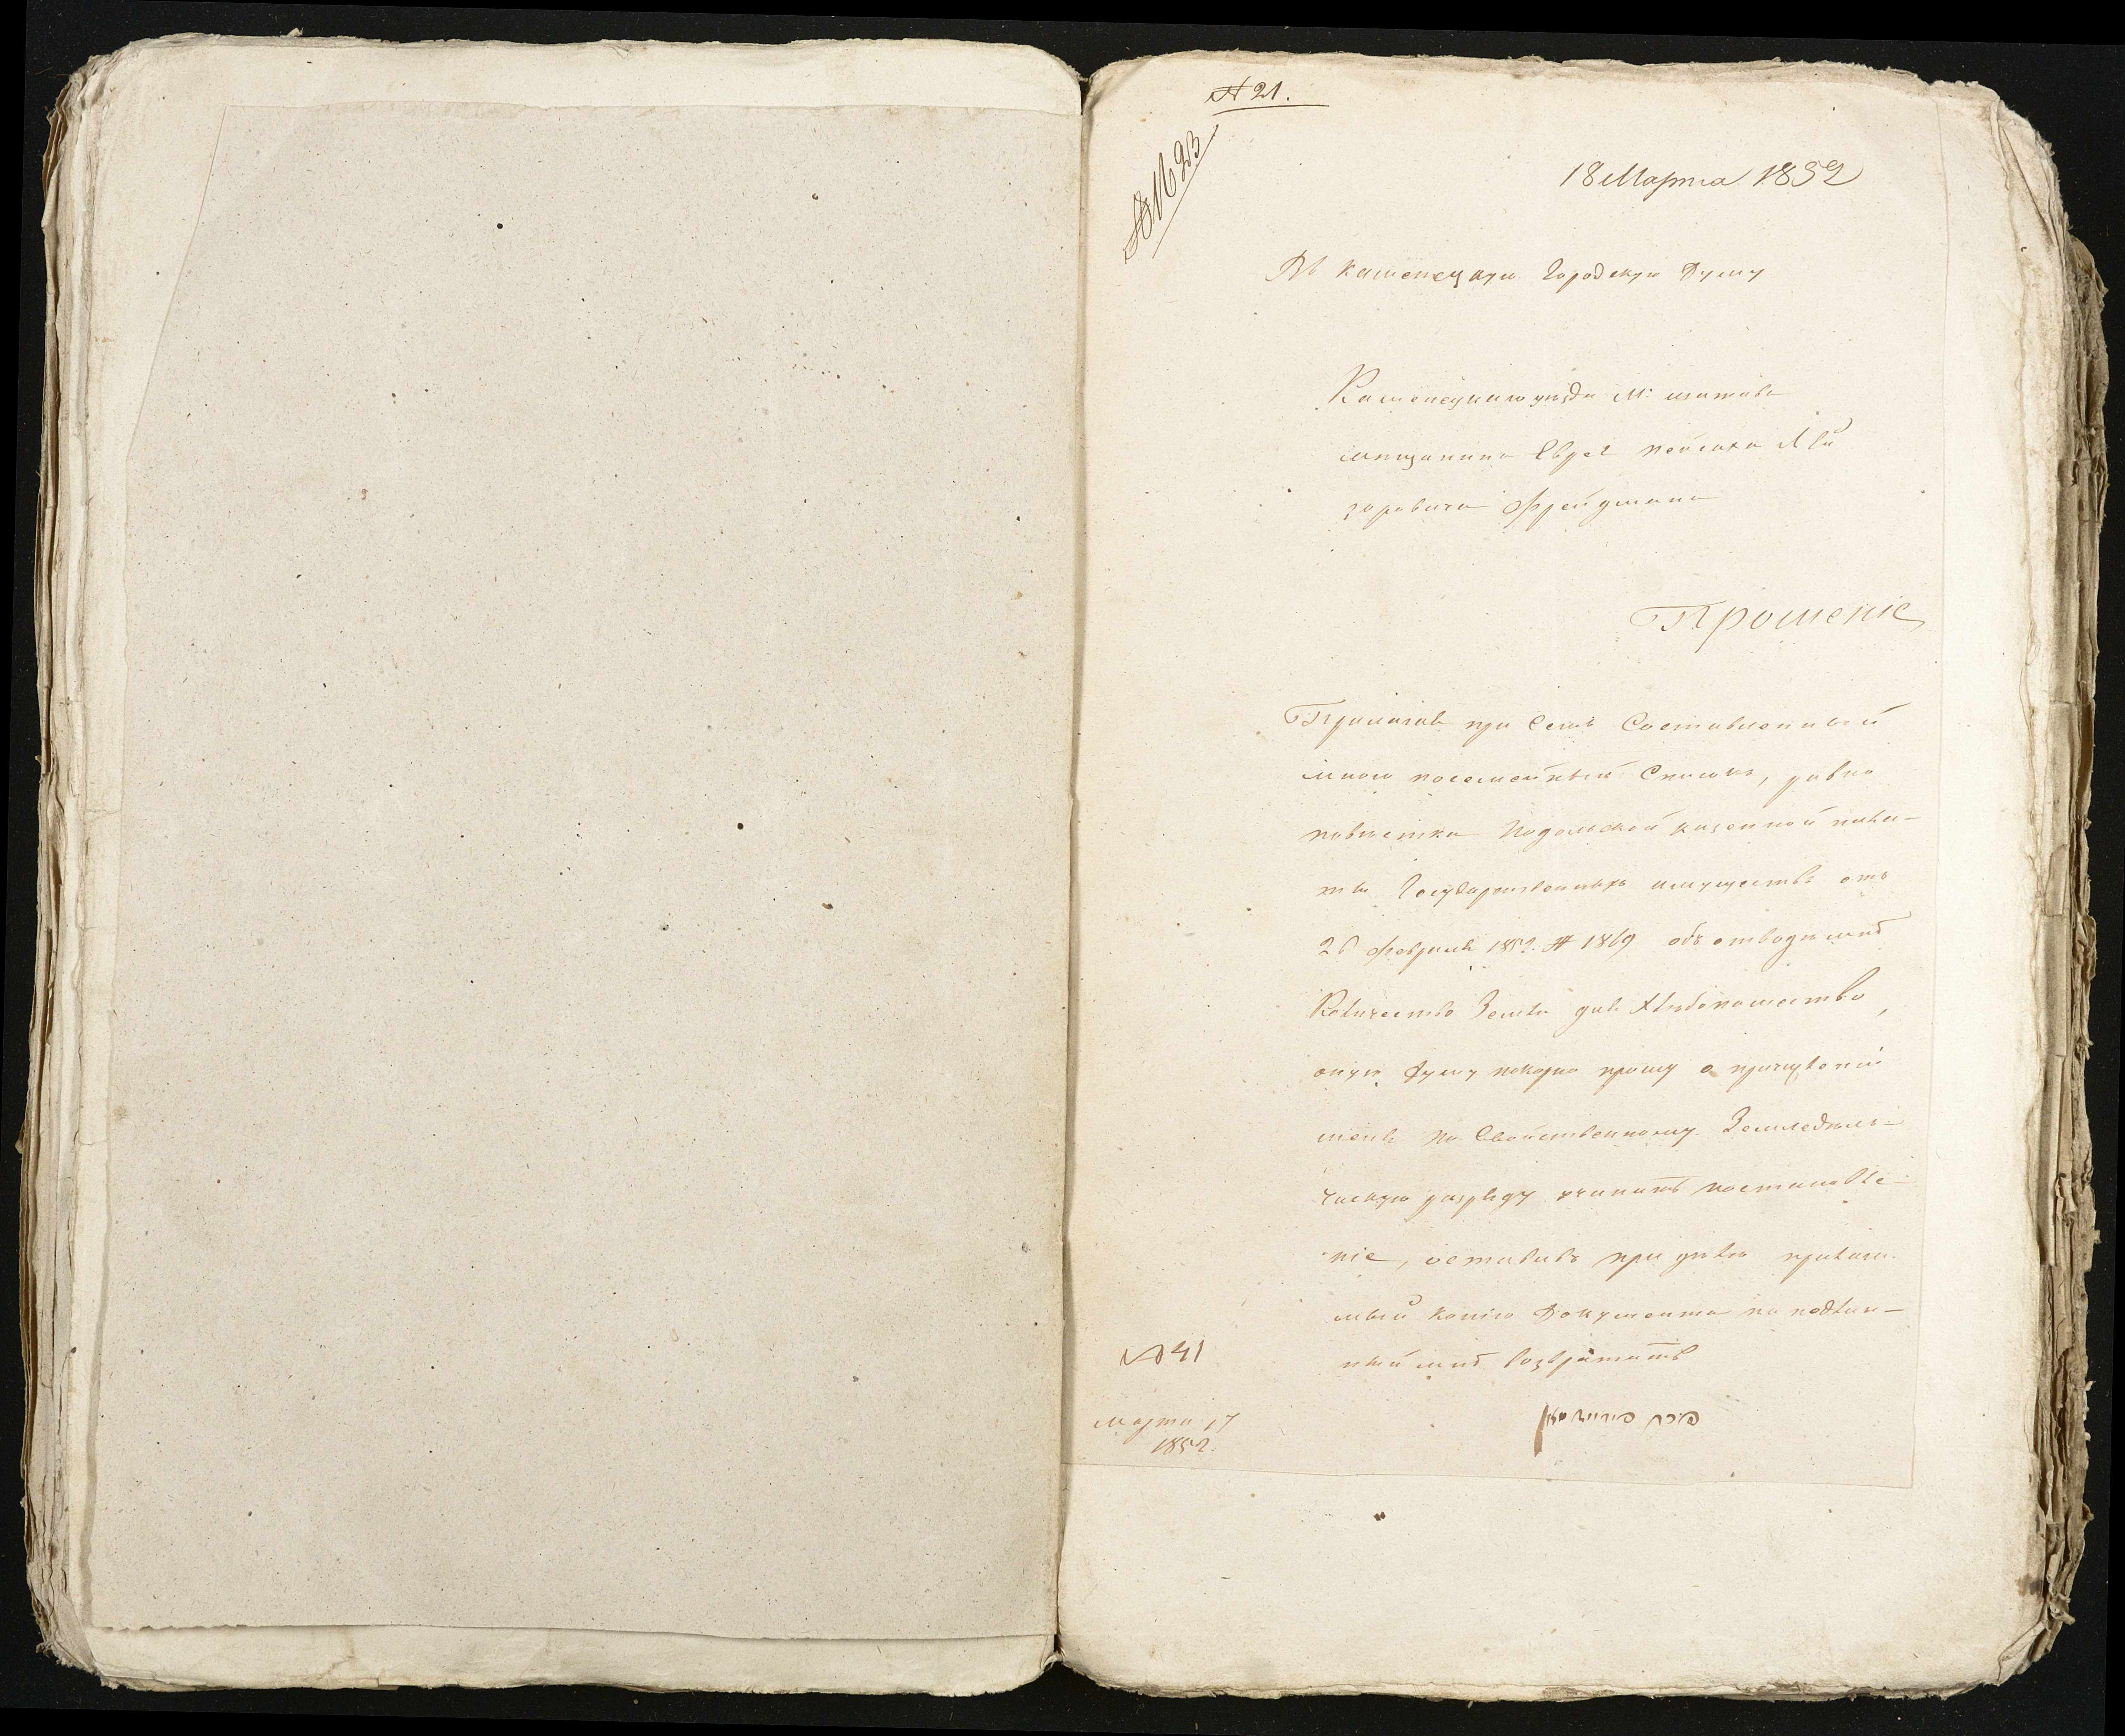 № 21.
№ 1623
18 Марта 1852
Въ каменецкую Городскую Думу
Каменецкаго уѣзда М:
мѣщанина Еврея пейсаха Лей
заровича Фрейдмана
Прошеніе
Прилагая при семъ Составленный
мною посемейный Списокъ, равно
повѣстки Подольской казенной пала-
ты Государственныхъ имуществъ отъ
26 февраля 1852. № 1869 объ отводѣ мнѣ
Количество Земли для Хлѣбопашество,
оную Думу покорно прошу о причисленіи
меня по Свойственному Земледѣль-
ческую разряду учинить постановле-
ніе, оставивъ при дѣлѣ прилага
мый копію Документа на подлин-
ный мнѣ возвратить
פיסח פריידמאן
№ 41
марта 17
1852.